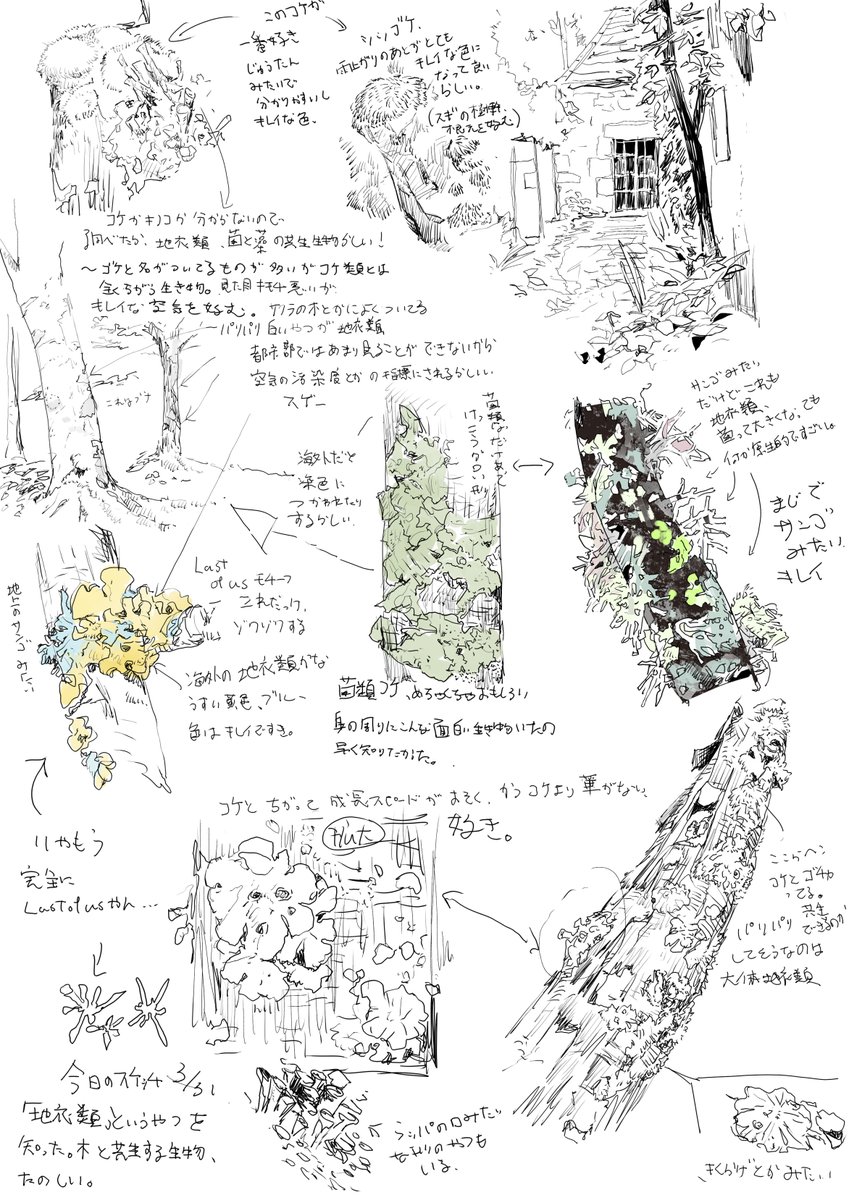 このコケが
一番好き
じゅうたん
みたいで
分かりやすいし
キレイな色。
シノブゴケ、
雨上がりのあとがとても
キレイな色に
なって良い
らしい。
(スギの植樹、
コケかキノコか分からないので
調べたら、地衣類、菌と藻の共生生物らしい!
〜ゴケと名がついてるものが多いがコケ類とは
全くちがう生き物。見た目キモチ悪いが
キレイな空気を好む。サクラの木とかによくついてる
パリパリ白いやつが地衣類
都市部ではあまり見ることができないから
空気の汚染度とかの指標にされるらしい
スゲー
これはブナ
海外だと
染色に
つかわれたり
するらしい
菌類なだけあって
けっこうグロい形
サンゴみたい
だけどこれも
地衣類、
菌って大きくなっても
まじで
サンゴ
みたい
キレイ
地上のサンゴみたい
Last
of us モチーフ
これだっけ、
ゾワゾワする
海外の地衣類かな
うすい黄色、ブルー
色はキレイですき。
菌類コケ、めちゃくちゃおもしろい
身の周りにこんな面白い生き物いたの
早く知りたかった。
コケとちがって成長スピードがおそく、かつコケより華がない
好き。
拡大
いやもう
完全に
Last of usやん…
ここらヘン
コケとゴチャ
ってる。
共生
できるのか
パリパリ
してそうなのは
大体地衣類
今日のスケッチ 3/31
「地衣類」というやつを
知った。木と共生する生物、
たのしい。
ラッパの口みたい
な形のやつも
いる。
きくらげとかみたい